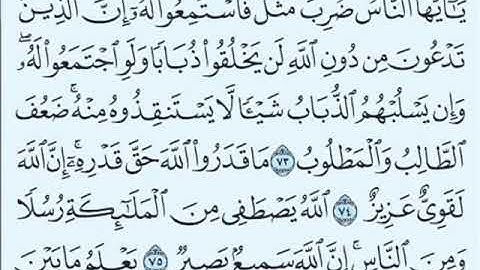 يَـٰٓأَيُّهَا ٱلنَّاسُ ضُرِبَ مَثَلٌ فَٱسْتَمِعُوا۟ لَهُۥٓ إِنَّ ٱلَّذِينَ
تَدْعُونَ مِن دُونِ ٱللَّهِ لَن يَخْلُقُوا۟ ذُبَابًا وَلَوِ ٱجْتَمَعُوا۟ لَهُۥ ۖ
وَإِن يَسْلُبْهُمُ ٱلذُّبَابُ شَيْـًٔا لَّا يَسْتَنقِذُوهُ مِنْهُ ۚ ضَعُفَ
ٱلطَّالِبُ وَٱلْمَطْلُوبُ ٧٣ مَا قَدَرُوا۟ ٱللَّهَ حَقَّ قَدْرِهِۦٓ ۗ إِنَّ ٱللَّهَ
لَقَوِىٌّ عَزِيزٌ ٧٤ ٱللَّهُ يَصْطَفِى مِنَ ٱلْمَلَـٰٓئِكَةِ رُسُلًا
وَمِنَ ٱلنَّاسِ ۚ إِنَّ ٱللَّهَ سَمِيعٌۢ بَصِيرٌ ٧٥ يَعْلَمُ مَا بَيْنَ